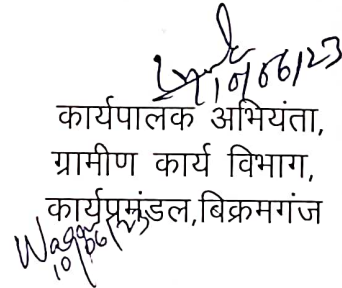 10/06/23
कार्यपालक अभियंता,
ग्रामीण कार्य विभाग,
कार्यप्रमंडल,बिक्रमगंज
10/06/23